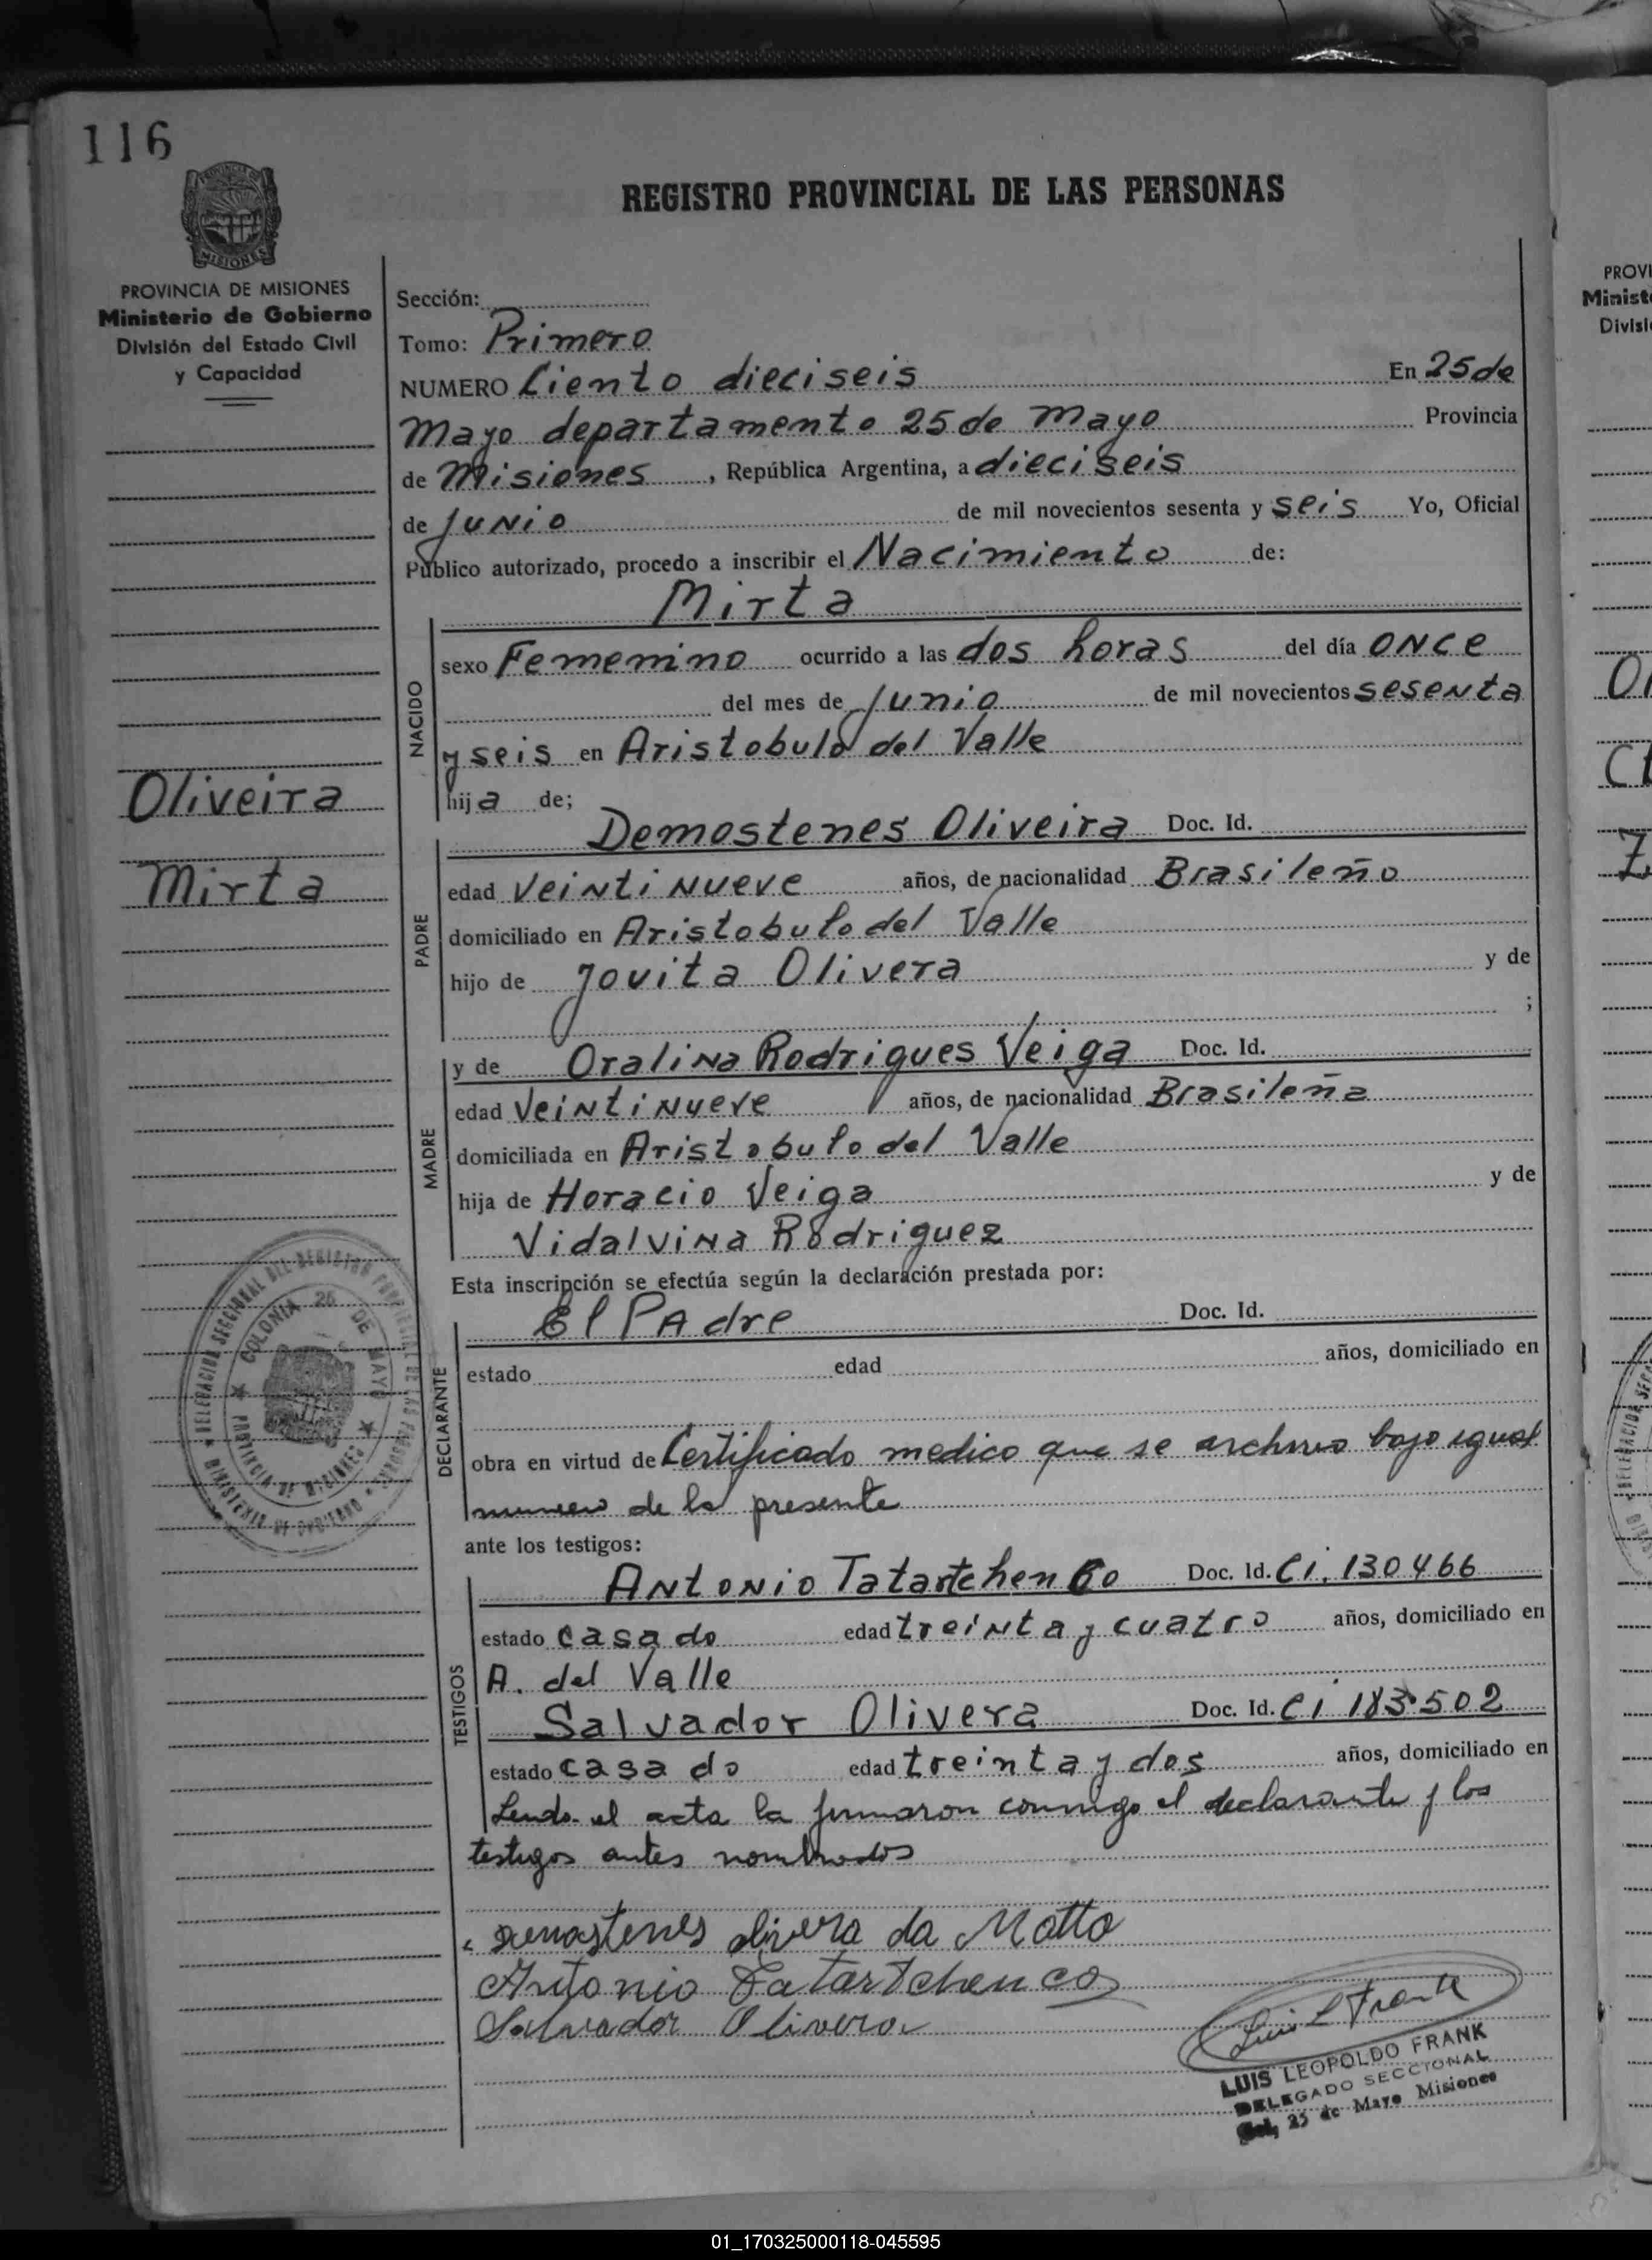 116
REGISTRO PROVINCIAL DE LAS PERSONAS
MISIONES
PROVINCIA DE MISIONES
Ministerio de Gobierno
División del Estado Civil
y Capacidad
Oliveira
Mirta
Sección:
Tomo: Primero
NUMERO Ciento dieciseis En 25 de
Mayo departamento 25 de Mayo Provincia
de Misiones, República Argentina, a dieciseis
de Junio de mil novecientos sesenta y seis Yo, Oficial
Público autorizado, procedo a inscribir el Nacimiento de:
Mirta
NACIDO
sexo Femenino ocurrido a las dos horas del día once
del mes de Junio de mil novecientos sesenta
y seis en Aristobulo del Valle
hija de;
Demostenes Oliveira Doc. Id.
PADRE
edad veintinueve años, de nacionalidad Brasileño
domiciliado en Aristobulo del Valle
hijo de Jovita Olivera y de
;
y de Oralina Rodrigues Veiga Doc. Id.
MADRE
edad veintinueve años, de nacionalidad Brasileña
domiciliada en Aristobulo del Valle
hija de Horacio Veiga y de
Vidalvina Rodriguez
Esta inscripción se efectúa según la declaración prestada por:
El Padre Doc. Id.
DECLARANTE
estado edad años, domiciliado en
obra en virtud de Certificado medico que se archiva bajo igual
numero de la presente
ante los testigos:
Antonio Tatartchenco Doc. Id. Ci. 130466
TESTIGOS
estado casado edad treinta y cuatro años, domiciliado en
A. del Valle
Salvador Olivera Doc. Id. Ci 183.502
estado casado edad treinta y dos años, domiciliado en
Leida el acta la firmaron conmigo el declarante y los
testigos antes nombrados
Demostenes olivera da Motta
Antonio Tatartchenco
Salvador Olivera
Luis L Frank
LUIS LEOPOLDO FRANK
DELEGADO SECCIONAL
Col, 25 de Mayo Misiones
DELEGACION SECCIONAL DEL REGISTRO PROVINCIAL DE LAS PERSONAS
MINISTERIO DE GOBIERNO
COLONIA 25 DE MAYO
PROVINCIA DE MISIONES
PROVI
Ministe
Divisi
01_170325000118-045595